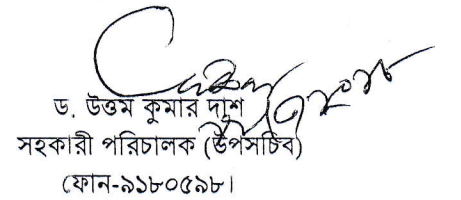 ড. উত্তম কুমার দাশ
সহকারী পরিচালক (উপসচিব)
ফোন-৯১৮০৫৯৮।